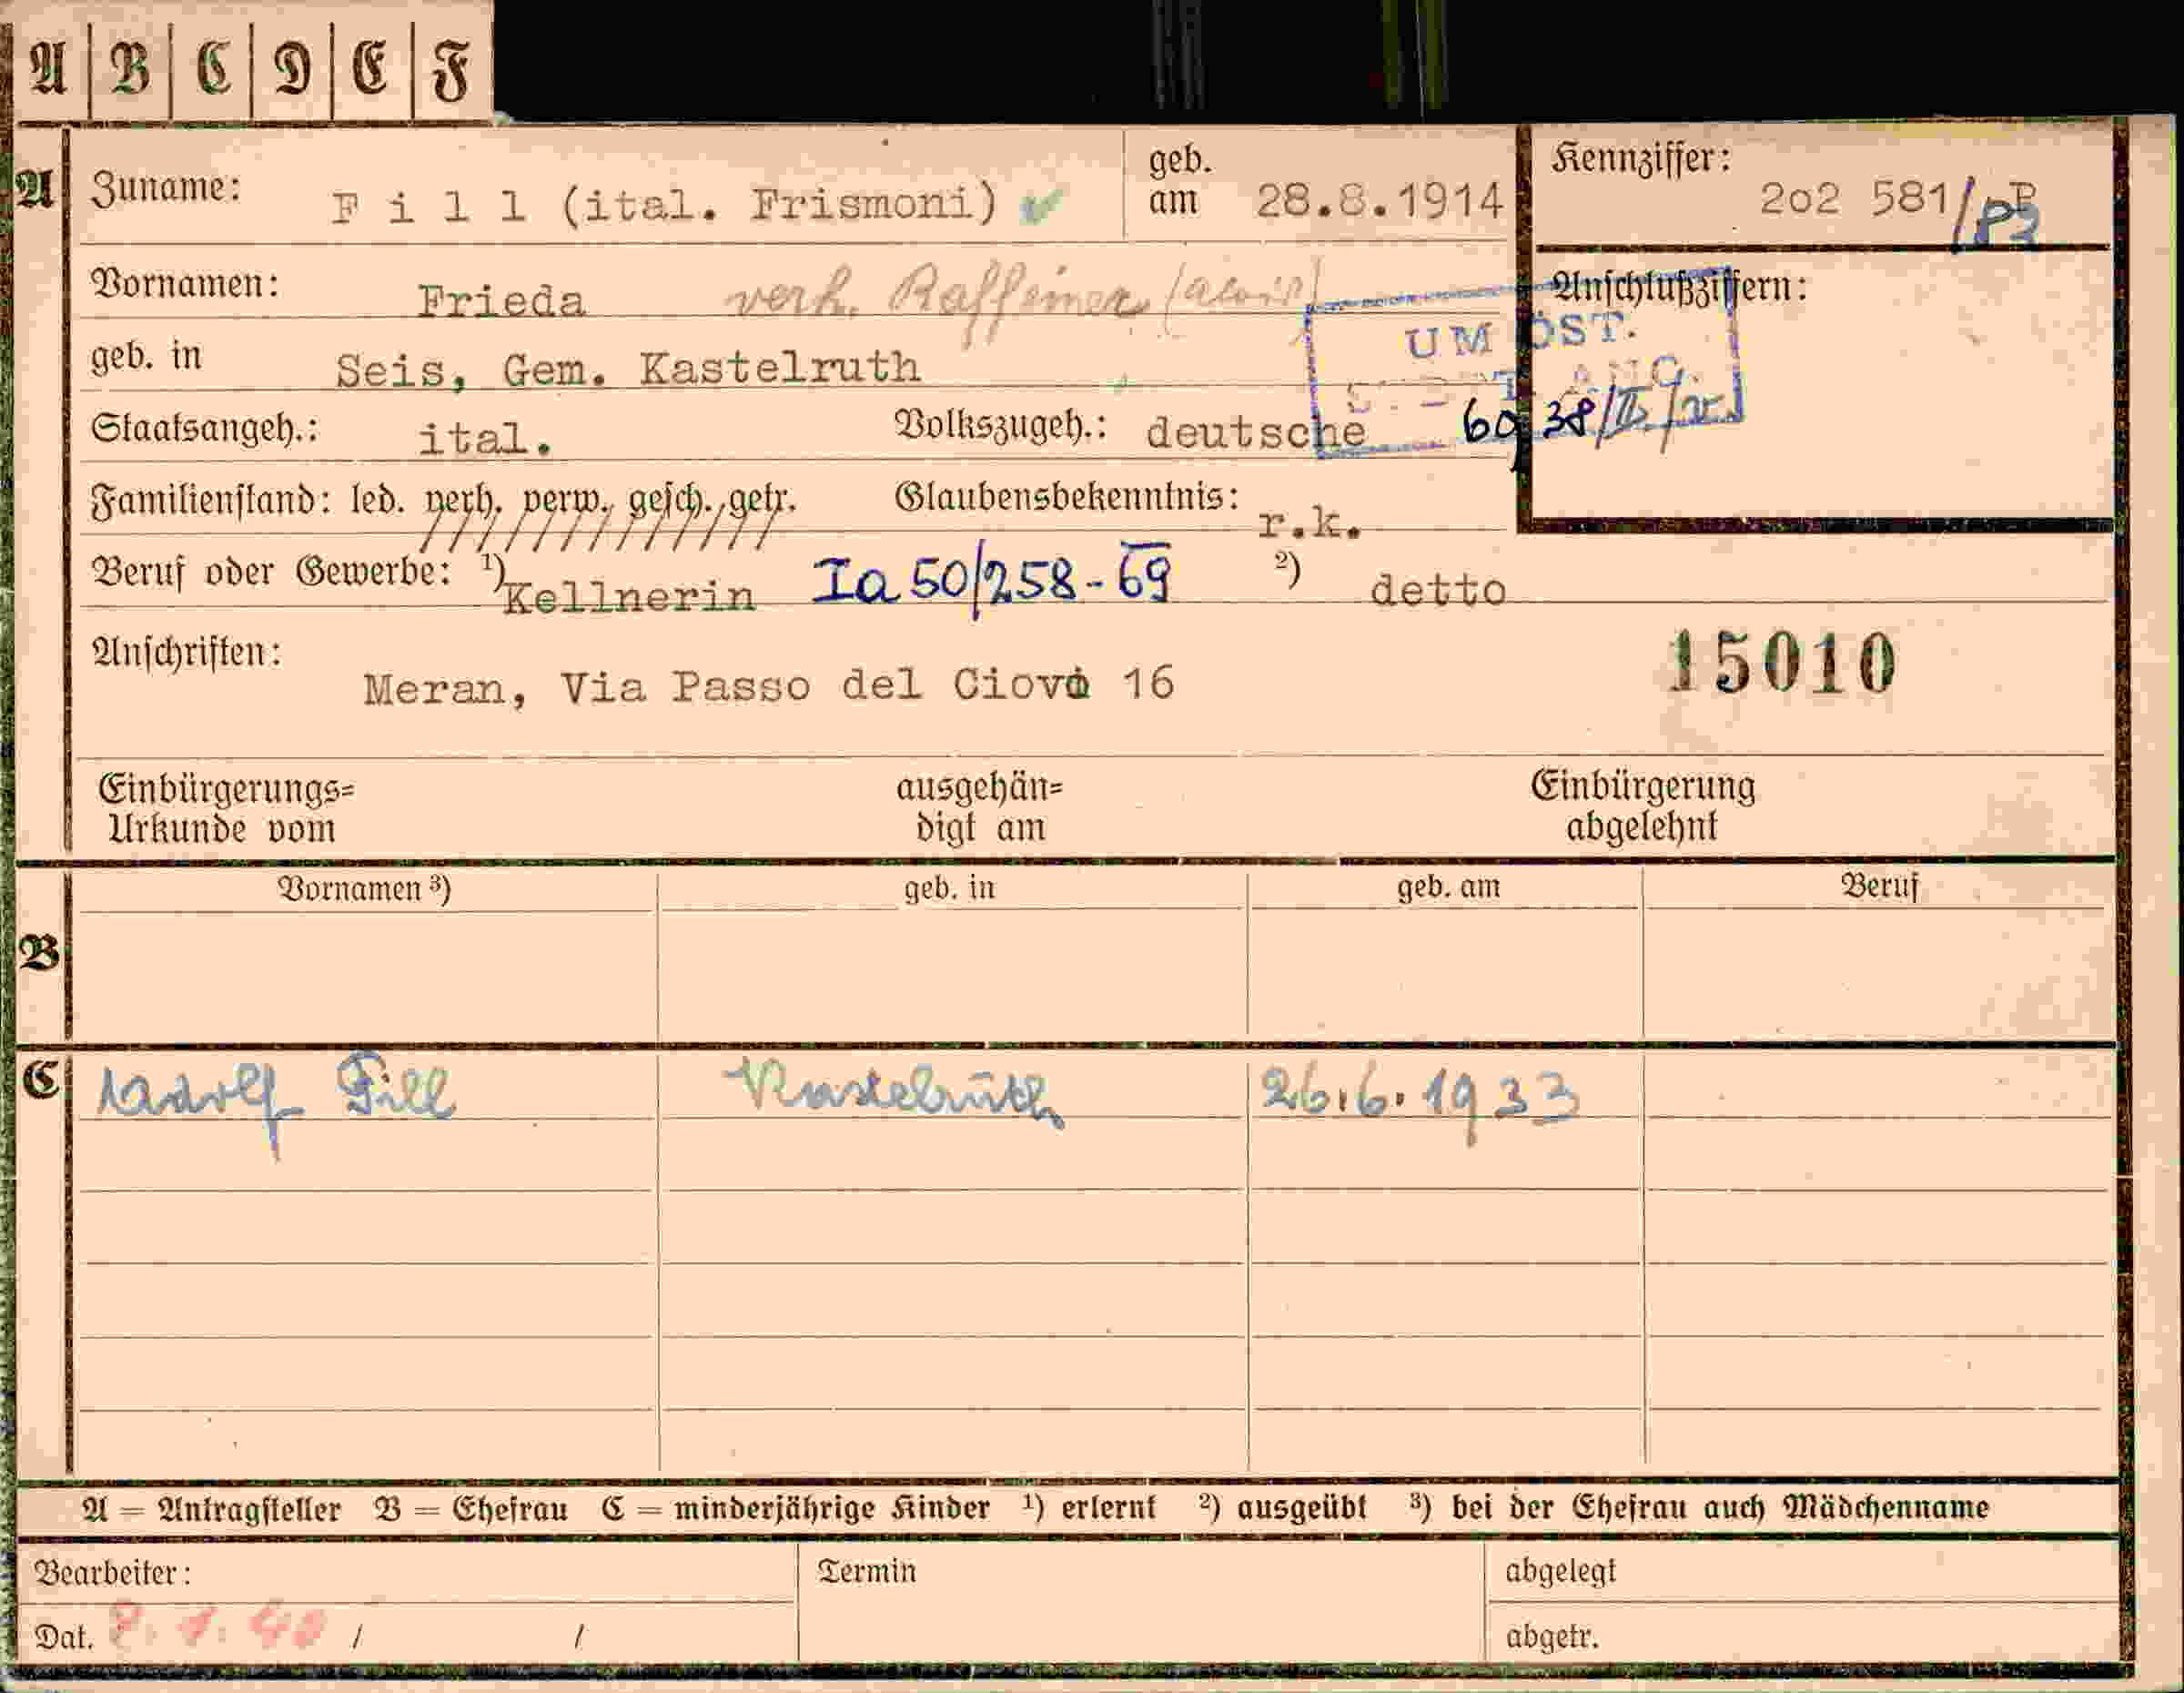 A B C D E F
A Zuname: Fill (ital. Frismoni) geb. am 28.8.1914 Kennziffer: 2o2 581/
Vornamen: Frieda verh. Raffeiner (Alois) Anschlußziffern:
UM ÖST.
geb. in Seis, Gem. Kastelruth
Staatsangeh.: ital. Volkszugeh.: deutsche
Familienstand: led. verh. verw. gesch. getr. Glaubensbekenntnis: r.k.
Beruf oder Gewerbe: ¹) Kellnerin Ia 50/258-69 ²) detto
Anschriften: Meran, Via Passo del Giovo 16 15010
Einbürgerungs= ausgehän= Einbürgerung
Urkunde vom digt am abgelehnt
Vornamen ³) geb. in geb. am Beruf
B
C Adolf Fill Kastelruth 26.6.1933
A = Antragsteller B = Ehefrau C = minderjährige Kinder ¹) erlernt ²) ausgeübt ³) bei der Ehefrau auch Mädchenname
Bearbeiter: Termin abgelegt
Dat. / / abgetr.